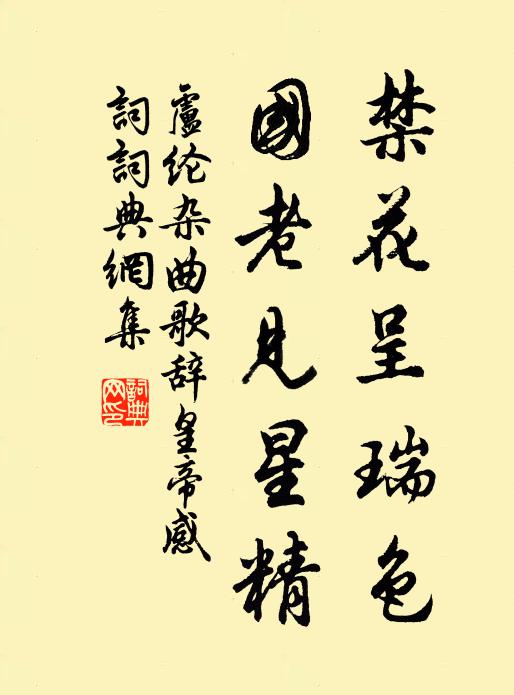 禁花呈瑞色
國老見星精
盧纶杂曲歌辞皇帝感
詞詞典網集
詞典
网印